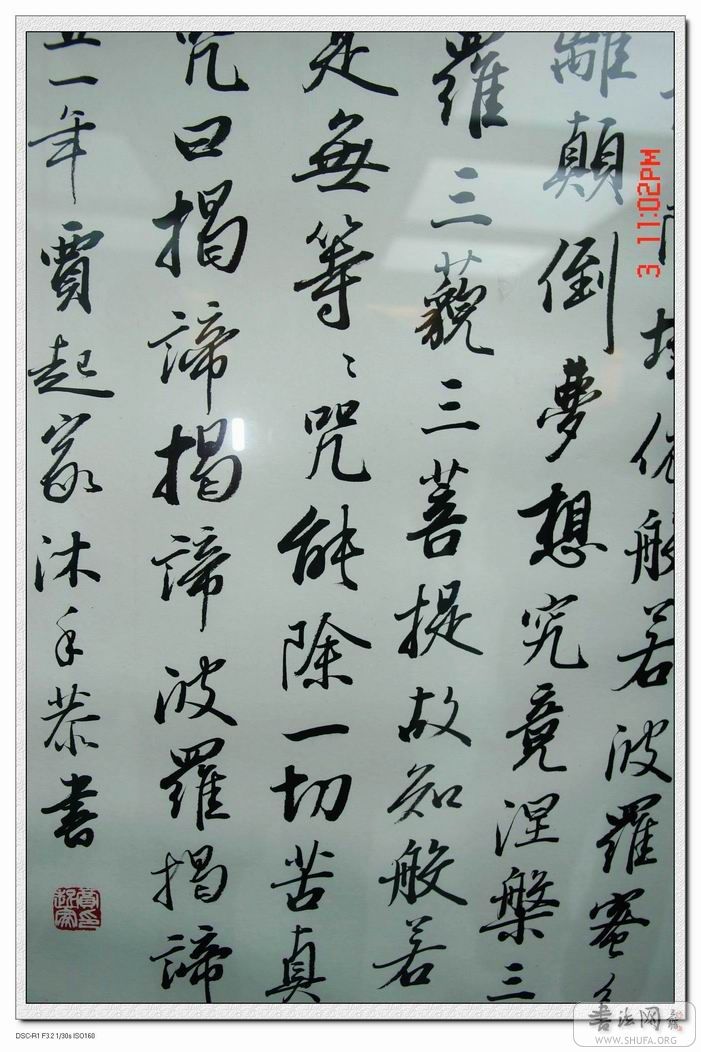 故菩提依般若波羅蜜多
離顛倒夢想究竟涅槃三
羅三藐三菩提故知般若
是無等等咒能除一切苦真
咒曰揭諦揭諦波羅揭諦
年賈起家沐手恭書
賈起家印
3 11:02PM
書法网
WWW.SHUFA.ORG
DSC-R1 F3.2 1/30s ISO160